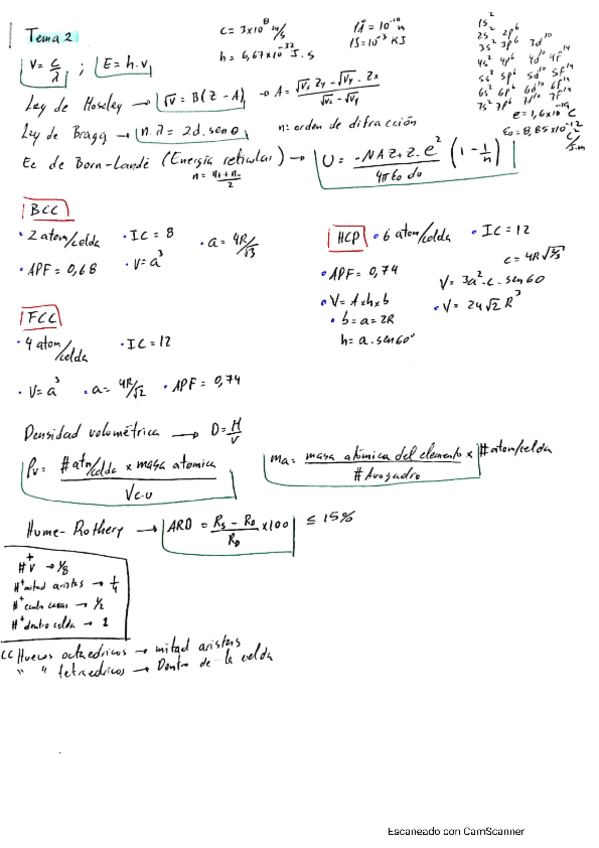 Tema 2
c = 3x10^8 m/s
h = 6,67x10^-32 J.s
1Å = 10^-10 m
1J = 10^-3 KJ
1s^2
2s^2 2p^6
3s^2 3p^6 3d^10
4s^2 4p^6 4d^10 4f^14
5s^2 5p^6 5d^10 5f^14
6s^2 6p^6 6d^10 6f^14
7s^2 7p^6 7d^10 7f^14
e = 1,6x10^-19 C
ε0 = 8,85x10^-12 C/J.m
V = c/λ ; E = h.v
Ley de Moseley → √v = B(Z - A) → A = (√Vx Zy - √Vy . Zx)/(√Vx - √Vy)
Ley de Bragg → n.λ = 2d.senθ n: orden de difracción
Ec de Born-Landé (Energía reticular) → U = (-NAZ+Z-e^2)/(4πε0 d0) (1 - 1/n)
n = (n1+n2)/2
BCC
• 2 atom/celda • IC = 8 • a = 4R/√3
• APF = 0,68 • V = a^3
HCP • 6 atom/celda • IC = 12
c = 4R√(2/3)
• APF = 0,74 V = 3a^2.c.sen60
• V = A x h x b • V = 24√2 R^3
• b = a = 2R
h = a.sen60°
FCC
• 4 atom/celda • IC = 12
• V = a^3 • a = 4R/√2 • APF = 0,74
Densidad volumétrica → D = M/V
ρv = (# atm/celda x masa atomica)/(Vc.u)
ma = (masa atómica del elemento)/(# Avogadro) x # atom/celda
Hume-Rothery → ARD = (Rs - RD)/RD x100 ≤ 15%
#^+ v → 1/8
#^+ mitad aristas → 1/4
#^+ centro caras → 1/2
#^+ dentro celda → 1
CC Huecos octaedricos → mitad aristas
" " tetraedricos → Dentro de la celda
Escaneado con CamScanner